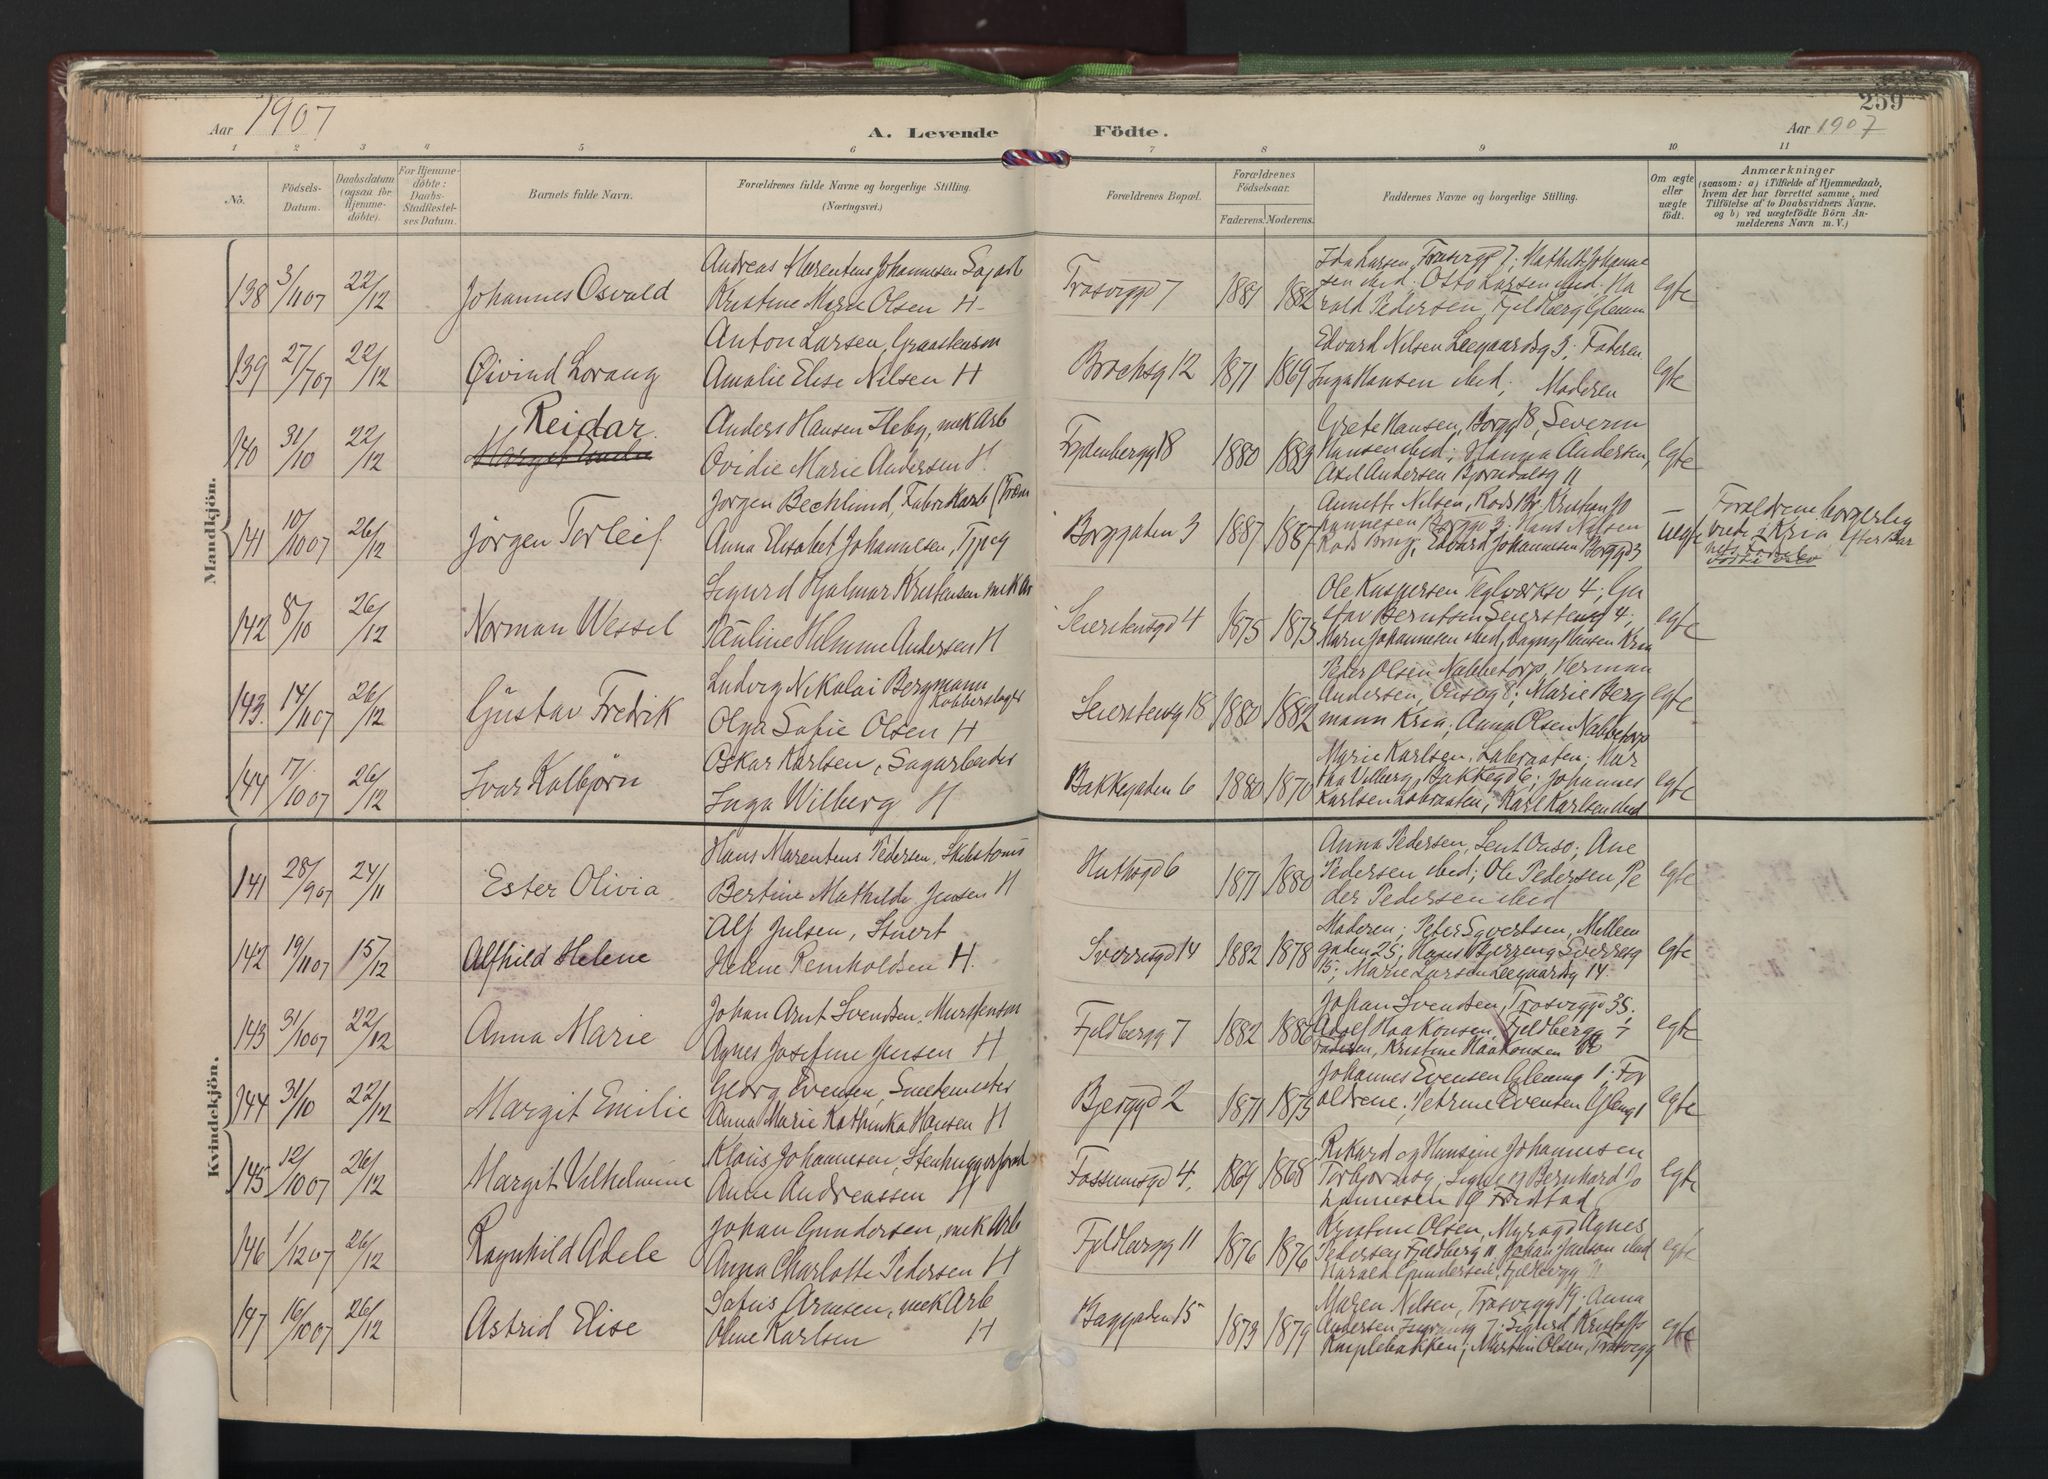 259
Aar 1907
A. Levende Födte.
Aar 1907
1 2 3 4 5 6 7 8 9 10 11
No.
Födsels-Datum.
Daabsdatum (ogsaa for Hjemmedöbte).
For Hjemmedöbte: Daabs-Stadfæstelses Datum.
Barnets fulde Navn.
Forældrenes fulde Navne og borgerlige Stilling.
(Næringsvei.)
Forældrenes Bopæl.
Forældrenes Födselsaar.
Faderens. Moderens.
Faddernes Navne og borgerlige Stilling.
Om ægte eller uægte födt.
Anmærkninger
(saasom: a) i Tilfælde af Hjemmedaab, hvem der har forrettet samme, med Tilföielse af to Daabsvidners Navne, og b) ved uægtefödte Börn Anmelderens Navn m. V.)
Mandkjön.
138 3/11 07 22/12 Johannes Osvald
Andreas Marentius Johannesen Sagarb
Kristine Marie Olsen H
Trosviggd 7 1881 1882
Ida Larsen, Trosvigg 7; Mathilde Johanne
sen ibid. Otto Larsen ibid. Ha
rald Pedersen, Fjeldberg Glemm
egte
139 27/7 07 22/12 Øivind Lorang
Anton Larsen, Graastensm
Amalie Elise Nilsen H
Brochsg 12 1871 1869
Edvard Nilsen Leegaardsg 3; Faderen
Inga Hansen ibid; Moderen
egte
140 31/10 22/12 Reidar
Anders Hansen Heby, mek Arb
Ovidie Marie Andersen H.
Fredenbergg 18 1880 1883
Grete Hansen, Borgg 18, Severin
Hansen ibid; Hanna Andersen,
Axel Andersen Bjørndalsg 11
egte
141 10/10 07 26/12 Jørgen Torleif
Jørgen Becklund, Fabrikarb
Anna Elisabet Johannesen, Tjpig
Borggaden 3 1887 1887
Annette Nilsen, Rods Br. Kristian Jo
hannesen Borgg 3. Hans Nilsen
Rods Brug; Edvard Johannesen Borgg 3
uegte
Forældrene borgerlig
viede i Kria efter Bar
nets Fødsel
142 8/10 26/12 Norman Wessel
Sigurd Hjalmar Kristensen mek Ar
Pauline Helmine Andersen H
Seierstensgd 4 1875 1875
Ole Kaspersen Teglverksv 4; Gu
stav Berntsen Seierstensg 4;
Karn Johannesen ibid, Dagny Hansen Kria
egte
143. 14/11 07 26/12 Gustav Fredrik
Ludvig Nikolai Bergmann
Kobberslager
Olga Sofie Olsen H
Seierstensg 18 1880 1882
Peder Olsen Nabbetorp, Herman
Andersen, Onsøg 8; Marie Berg
mann Kria; Anna Olsen Nabbetorp
egte
144 17/10 07 26/12 Ivar Kolbjörn
Oskar Karlsen, Sagarbeider
Inga Wilberg H
Bakkegaden 6 1880 1870
Marie Karlsen, Labraaten; Mar
tha Vilberg, Bakkegd 6; Johannes
Karlsen Labraaten; Karl Karlsen ibid
egte
Kvindekjön.
141 28/9 07 24/11 Ester Olivia
Hans Marentius Pedersen, Skibstømm
Bertine Mathilde Jensen H
Huthsgd 6 1871 1880
Anna Pedersen, Lent Onsø; Ane
Pedersen ibid; Ole Pedersen Pe
der Pedersen ibid
egte
142 19/11 07 15/12 Alfhild Helene
Alf Julsen, Stuert
Helene Reinholdsen H.
Sverresgd 14 1882 1878
Moderen; Peter Syvertsen, Mellem
gaden 25; Hans Bjerreng Sverresg
15; Marie Larsen Leegaardsg 14
egte
143 31/10 07 22/12 Anna Marie
Johan Arnt Svendsen, Murstensm
Agnes Josefine Jensen H
Fjeldbergg 7 1882 1886
Johan Svendsen, Trosviggd 35;
Adolf Haakonsen, Fjeldbergg 7
Faderen, Kristine Haakonsen
egte
144 31/10 22/12 Margit Emilie
Georg Evensen, Smedemester
Anna Marie Kathinka Hansen H
Bjerggd 2 1871 1875
Johannes Evensen Glemmg 1; For
ældrene; Petrine Evensen Glemg 1
egte
145 12/10 07 26/12 Margit Vilhelmine
Klaus Johannesen, Stenhuggerforml
Anne Andreassen H
Fossumsgd 4. 1869 1868
Rikard og Hansine Johannesen
Torbjørnsg, Signe og Bernhard Jo
hannesen Fredstad
egte
146 1/12 07 26/12 Ragnhild Adele
Johan Gundersen, mek Arb
Anna Charlotte Pedersen H
Fjeldbergg 11 1876 1876
Kristine Olsen, Myragd Agnes
Pedersen Fjeldberg 11, Johan Jonson ibid
Harald Gundersen, Fjeldbergg 11
egte
147 16/10 07 26/12 Astrid Elise
Sofus Arnesen, mek Arb
Oline Karlsen H
Baggaden 15 1873 1879
Maren Nilsen, Trosvigg 19; Anna
Andersen 7; Sigurd Kristoffs
Kariplebakken; Martin Olsen, Trosvigg
egte